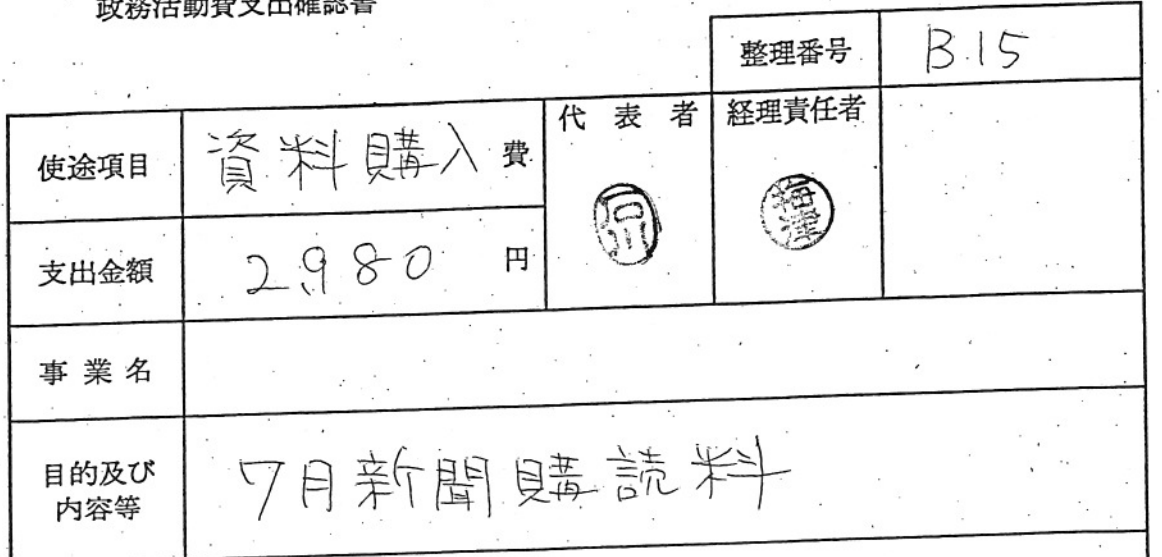 政務活動費支出確認書
整理番号 B.15
使途項目 資料購入費
代表者 経理責任者
支出金額 2,980 円
事業名
目的及び内容等 7月新聞購読料